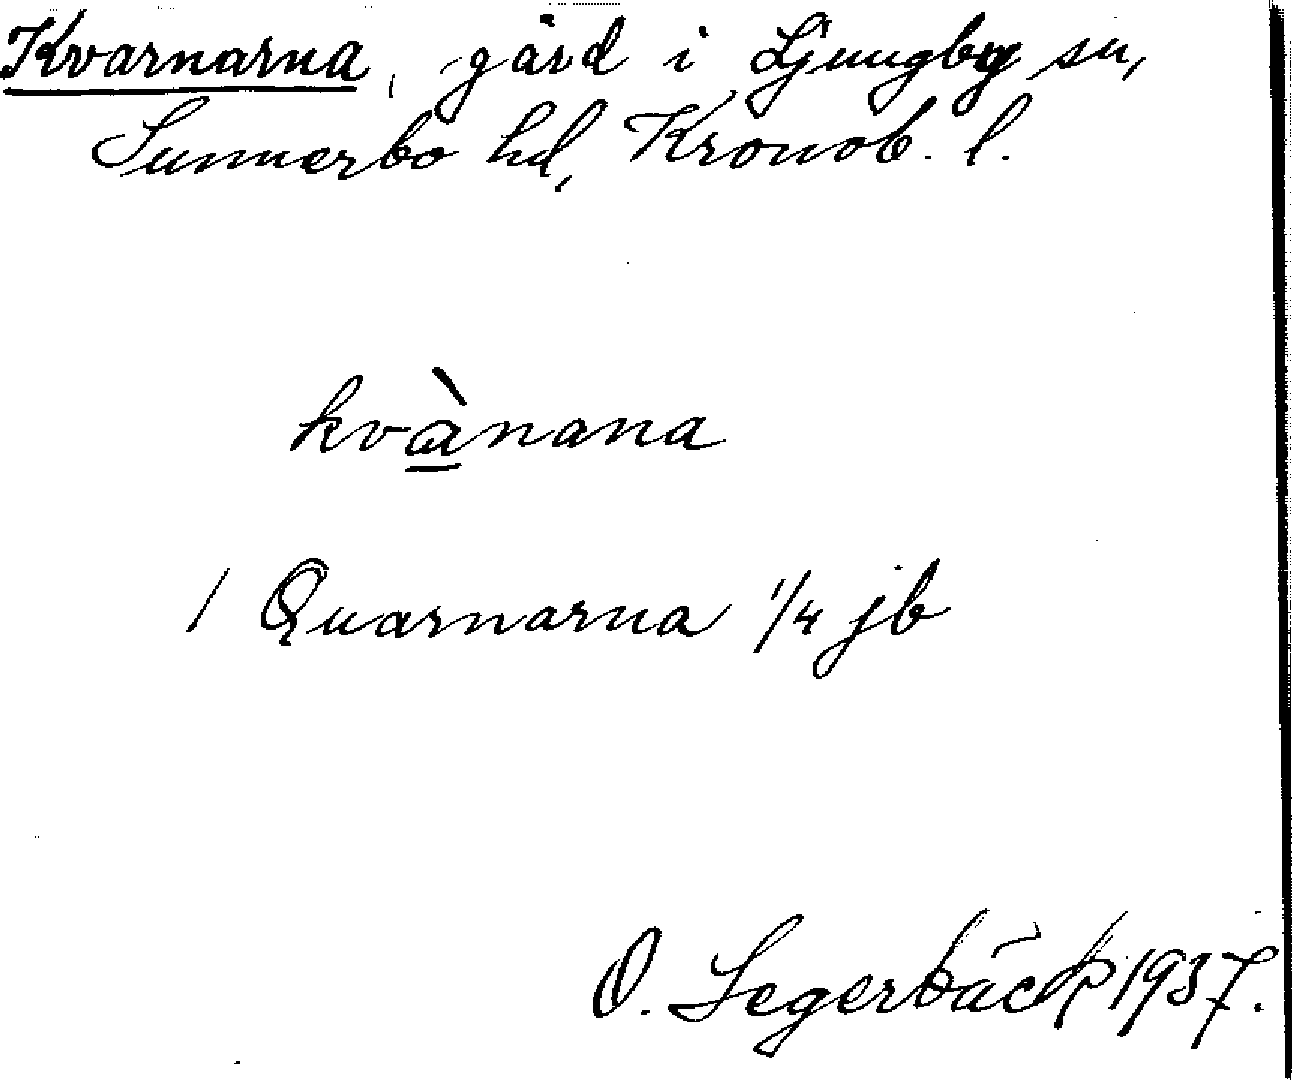 Kvarnarna, gård i Ljungby sn,
Sunnerbo hd, Kronob. l.
kvànana
1 Quarnarna 1/4 jb
O. Segerbäck 1937.